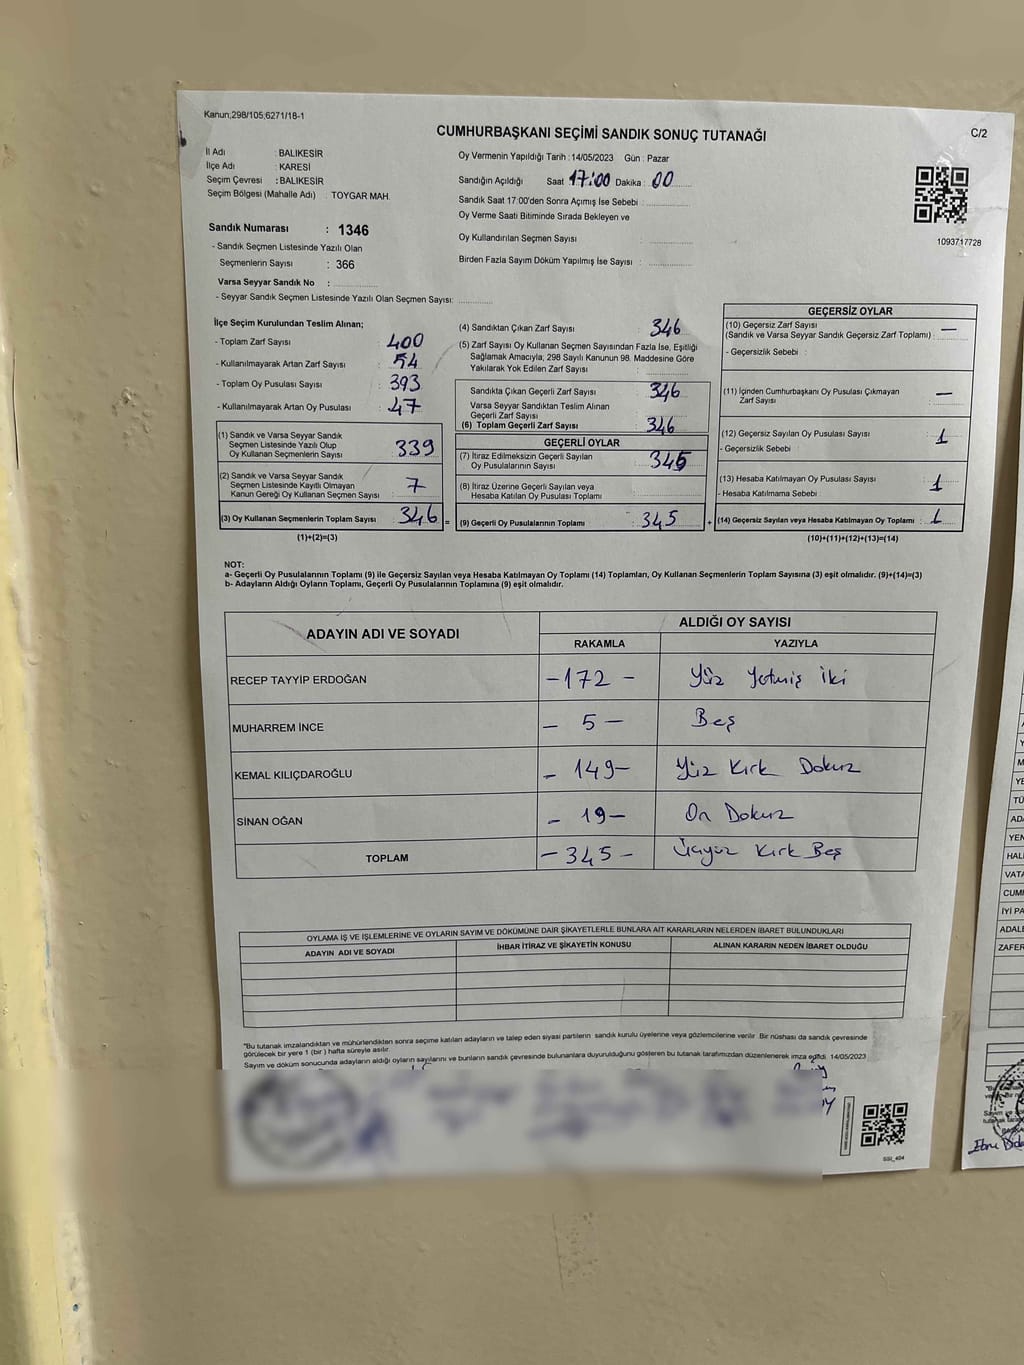 Kanun;298/105;6271/18-1
CUMHURBAŞKANI SEÇİMİ SANDIK SONUÇ TUTANAĞI
C/2
İl Adı : BALIKESİR
İlçe Adı : KARESİ
Seçim Çevresi : BALIKESİR
Seçim Bölgesi (Mahalle Adı) : TOYGAR MAH.
Oy Vermenin Yapıldığı Tarih : 14/05/2023 Gün : Pazar
Sandığın Açıldığı Saat 17:00 Dakika : 00
Sandık Saat 17:00'den Sonra Açımış İse Sebebi :
Oy Verme Saati Bitiminde Sırada Bekleyen ve
Oy Kullandırılan Seçmen Sayısı :
Birden Fazla Sayım Döküm Yapılmış İse Sayısı :
1093717728
Sandık Numarası : 1346
- Sandık Seçmen Listesinde Yazılı Olan
Seçmenlerin Sayısı : 366
Varsa Seyyar Sandık No :
- Seyyar Sandık Seçmen Listesinde Yazılı Olan Seçmen Sayısı:
İlçe Seçim Kurulundan Teslim Alınan;
- Toplam Zarf Sayısı : 400
- Kullanılmayarak Artan Zarf Sayısı : 54
- Toplam Oy Pusulası Sayısı : 393
- Kullanılmayarak Artan Oy Pusulası : 47
(1) Sandık ve Varsa Seyyar Sandık
Seçmen Listesinde Yazılı Olup
Oy Kullanan Seçmenlerin Sayısı : 339
(2) Sandık ve Varsa Seyyar Sandık
Seçmen Listesinde Kayıtlı Olmayan
Kanun Gereği Oy Kullanan Seçmen Sayısı : 7
(3) Oy Kullanan Seçmenlerin Toplam Sayısı : 346 =
(1)+(2)=(3)
(4) Sandıktan Çıkan Zarf Sayısı : 346
(5) Zarf Sayısı Oy Kullanan Seçmen Sayısından Fazla İse, Eşitliği
Sağlamak Amacıyla; 298 Sayılı Kanunun 98. Maddesine Göre
Yakılarak Yok Edilen Zarf Sayısı :
Sandıkta Çıkan Geçerli Zarf Sayısı : 346
Varsa Seyyar Sandıktan Teslim Alınan
Geçerli Zarf Sayısı :
(6) Toplam Geçerli Zarf Sayısı : 346
GEÇERLİ OYLAR
(7) İtiraz Edilmeksizin Geçerli Sayılan
Oy Pusulalarının Sayısı : 345
(8) İtiraz Üzerine Geçerli Sayılan veya
Hesaba Katılan Oy Pusulası Toplamı :
(9) Geçerli Oy Pusulalarının Toplamı : 345 +
GEÇERSİZ OYLAR
(10) Geçersiz Zarf Sayısı
(Sandık ve Varsa Seyyar Sandık Geçersiz Zarf Toplamı) : —
- Geçersizlik Sebebi :
(11) İçinden Cumhurbaşkanı Oy Pusulası Çıkmayan
Zarf Sayısı : —
(12) Geçersiz Sayılan Oy Pusulası Sayısı : 1
- Geçersizlik Sebebi :
(13) Hesaba Katılmayan Oy Pusulası Sayısı : 1
- Hesaba Katılmama Sebebi :
(14) Geçersiz Sayılan veya Hesaba Katılmayan Oy Toplamı : 1
(10)+(11)+(12)+(13)=(14)
NOT:
a- Geçerli Oy Pusulalarının Toplamı (9) ile Geçersiz Sayılan veya Hesaba Katılmayan Oy Toplamı (14) Toplamları, Oy Kullanan Seçmenlerin Toplam Sayısına (3) eşit olmalıdır. (9)+(14)=(3)
b- Adayların Aldığı Oyların Toplamı, Geçerli Oy Pusulalarının Toplamına (9) eşit olmalıdır.
ADAYIN ADI VE SOYADI
ALDIĞI OY SAYISI
RAKAMLA YAZIYLA
RECEP TAYYİP ERDOĞAN -172- Yüz Yetmiş İki
MUHARREM İNCE - 5 - Beş
KEMAL KILIÇDAROĞLU - 149- Yüz Kırk Dokuz
SİNAN OĞAN - 19- On Dokuz
TOPLAM -345- Üçyüz Kırk Beş
OYLAMA İŞ VE İŞLEMLERİNE VE OYLARIN SAYIM VE DÖKÜMÜNE DAİR ŞİKAYETLERLE BUNLARA AİT KARARLARIN NELERDEN İBARET BULUNDUKLARI
ADAYIN ADI VE SOYADI
İHBAR İTİRAZ VE ŞİKAYETİN KONUSU
ALINAN KARARIN NEDEN İBARET OLDUĞU
"Bu tutanak imzalandıktan ve mühürlendikten sonra seçime katılan adayların ve talep eden siyasi partilerin sandık kurulu üyelerine veya gözlemcilerine verilir. Bir nüshası da sandık çevresinde
görülecek bir yere 1 (bir) hafta süreyle asılır.
Sayım ve döküm sonucunda adayların aldığı oyların sayılarını ve bunların sandık çevresinde bulunanlara duyurulduğunu gösteren bu tutanak tarafımızdan düzenlenerek imza edildi. 14/05/2023
SSI_404